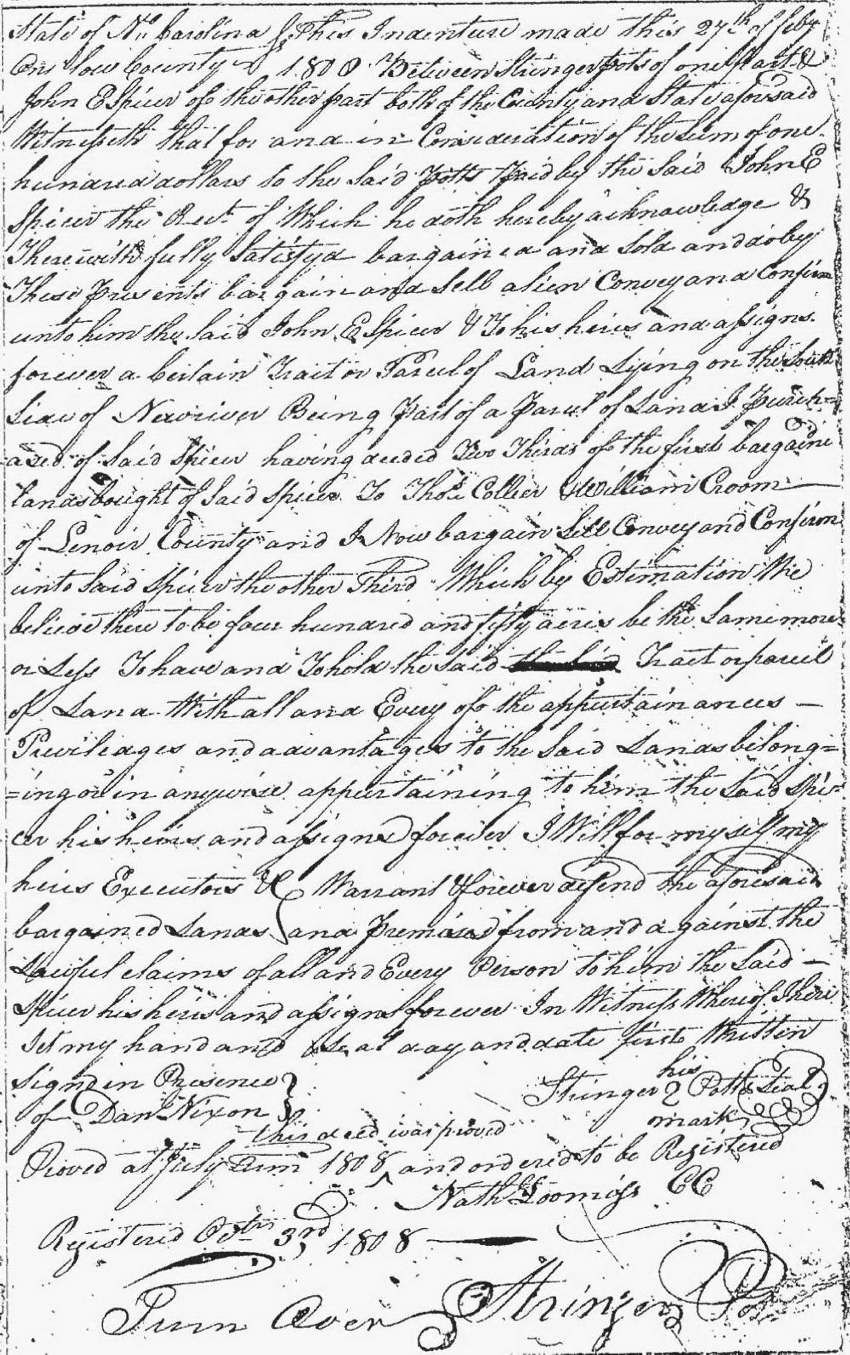 State of No. Carolina } This Indenture made this 27th of feby
Onslow County } 1808 Between Stringer Potts of one Part &
John E Spicer of the other part both of the County and State aforesaid
Witnesseth that for and in Consideration of the Sum of one
hundred dollars to the Said Potts Paid by the Said John E
Spicer the Rect. of Which he doth hereby acknowledge &
Therewith fully Satisfyd bargained and Sold and do by
These presents bargain and Sell alien Convey and Confirm
unto him the Said John E Spicer & To his heirs and assigns
forever a Certain Tract or Parcel of Land Lying on the South
Side of Newriver Being Part of a Parcel of Land I Purch=
=ased of Said Spicer having deeded Two Thirds of the first bargaind
lands bought of Said Spicer To Thos. Collier & William Croom
of Lenoir County and I Now bargain Sell Convey and Confirm
unto Said Spicer the other Third Which by Estimation We
believe there to be four hundred and fifty acres be the Same more
or Less To have and To hold the Said Tract or parcel
of Land With all and Every of the appurtainances —
Priviledges and advantages to the Said Lands belong=
=ing or in anywise appurtaining to him the Said Spi=
cer his heirs and assigns forever I Will for my self my
heirs Executors &C Warrant & forever defend the aforesaid
bargained Lands and Premises from and against the
Lawful claims of all and Every Person to him the Said —
Spicer his heirs and assigns forever In Witness Whereof I here
Set my hand and seal day and date first Written
Signd in Presence } his
of Danl Nixon } Stringer Potts Seal
mark
this deed was proved
Proved at July Term 1808 ^ and ordered to be Registered
Nath Loomiss CC
Registered Octr 3rd 1808 —
Turn Over Stringer Po